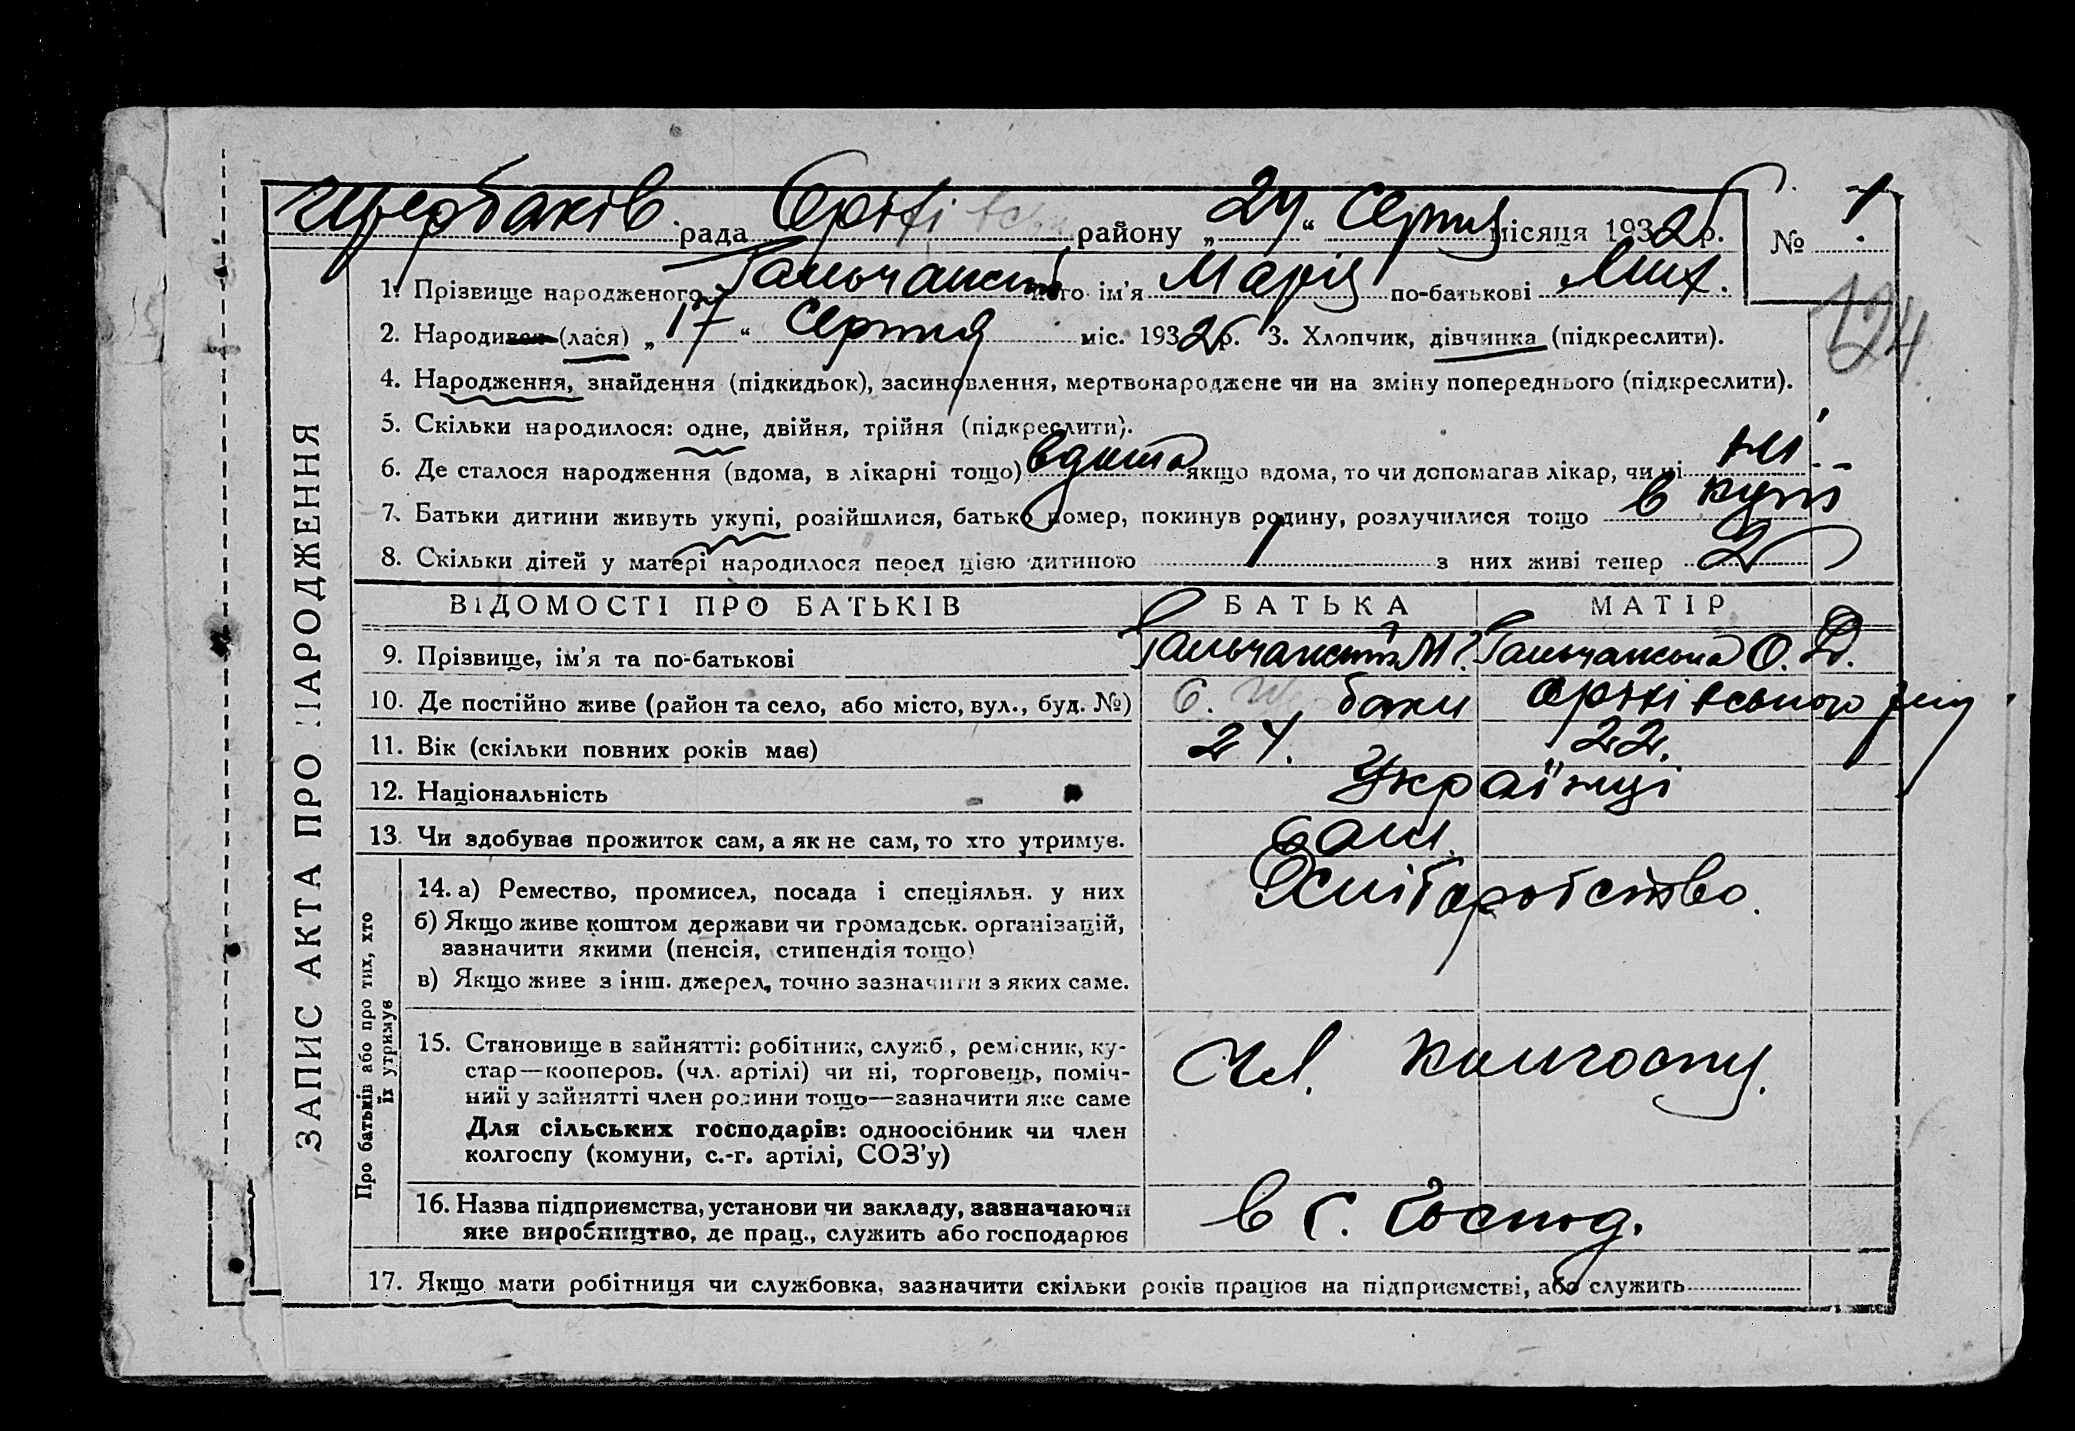 Щербаків рада Оріхівськ району „ 24 “ Серпня місяця 1932 р. № 1
1. Прізвище народженого Гальчанськ його ім'я Марія по-батькові Мих.
124
2. Народився (лася) „ 17 “ Серпня міс. 1932 р. 3. Хлопчик, дівчинка (підкреслити).
4. Народження, знайдення (підкидьок), засиновлення, мертвонароджене чи на зміну попереднього (підкреслити).
5. Скільки народилося: одне, двійня, трійня (підкреслити).
6. Де сталося народження (вдома, в лікарні тощо) вдома якщо вдома, то чи допомагав лікар, чи ні ні
7. Батьки дитини живуть укупі, розійшлися, батько помер, покинув родину, розлучилися тощо в купі
8. Скільки дітей у матері народилося перед цією дитиною 1 з них живі тепер 2
ВІДОМОСТІ ПРО БАТЬКІВ БАТЬКА МАТІР
9. Прізвище, ім'я та по-батькові Гальчанський М. Гальчанська О. Д.
10. Де постійно живе (район та село, або місто, вул., буд. №) С. Щербаки Оріхівського р-ну
11. Вік (скільки повних років має) 24. 22.
12. Національність Українці
13. Чи здобував прожиток сам, а як не сам, то хто утримує. Сам.
14. а) Ремество, промисел, посада і спеціяльн. у них Хліборобство.
б) Якщо живе коштом держави чи громадськ. організацій,
зазначити якими (пенсія, стипендія тощо)
в) Якщо живе з інш. джерел, точно зазначити з яких саме.
15. Становище в зайнятті: робітник, служб., ремісник, ку-
стар—кооперов. (чл. артілі) чи ні, торговець, поміч-
ний у зайнятті член родини тощо—зазначити яке саме
Для сільських господарів: одноосібник чи член
колгоспу (комуни, с.-г. артілі, СОЗ'у)
Чл. колгоспу.
16. Назва підприємства, установи чи закладу, зазначаючи
яке виробництво, де прац., служить або господарює
в с. господ.
17. Якщо мати робітниця чи службовка, зазначити скільки років працює на підприємстві, або служить
ЗАПИС АКТА ПРО НАРОДЖЕННЯ
Про батьків або про тих, хто
їх утримує